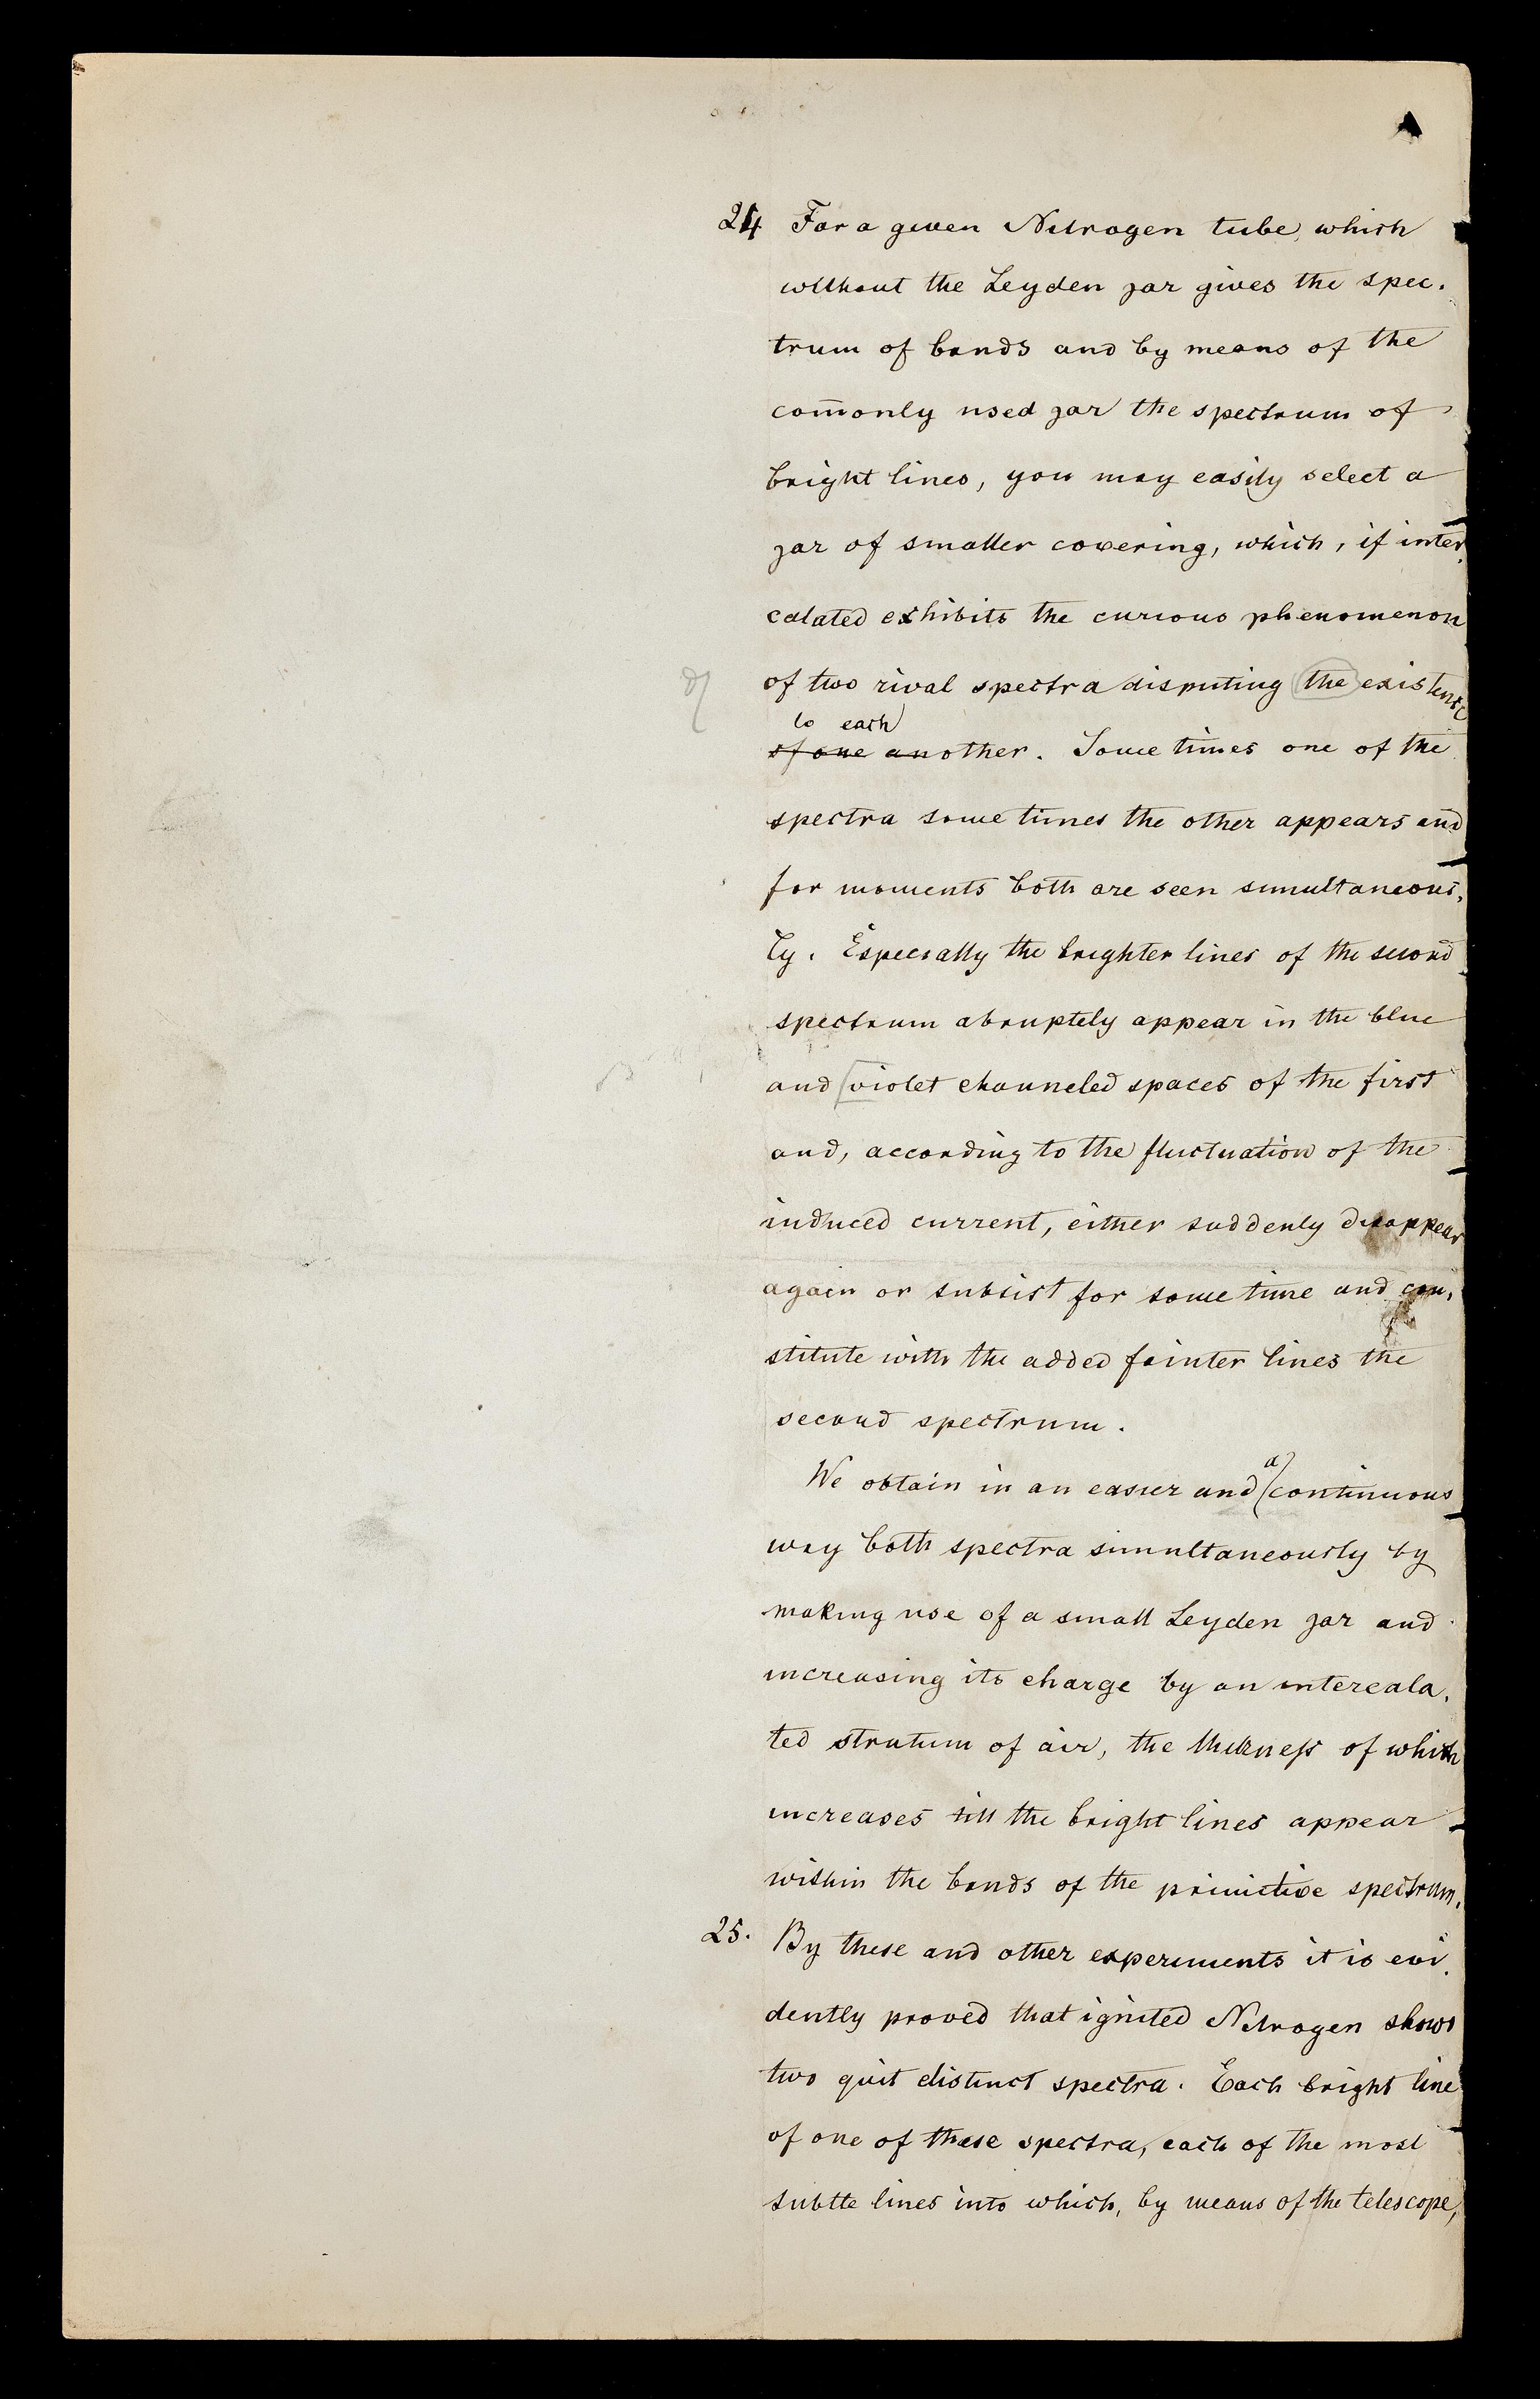 24 For a given Nitrogen tube, which
without the Leyden jar gives the spec.
trum of bands and by means of the
com̄only used jar the spectrum of
bright lines, you may easily select a
jar of smaller covering, which, if inter.
calated exhibits the curious phenomenon
of two rival spectra disputing the existence
to each
of one another. Some times one of the
spectra some times the other appears and
for moments both are seen simultaneous.
ly. Especially the brighter lines of the second
spectrum abruptely appear in the blue
and violet channeled spaces of the first
and, according to the fluctuation of the
induced current, either suddenly disappear
again or subsist for some time and con.
stitute with the added fainter lines the
second spectrum.
a
We obtain in an easier and continuous
way both spectra simultaneously by
making use of a small Leyden jar and
increasing its charge by an intercala.
ted stratum of air, the thickness of which
increases till the bright lines appear
within the bands of the primitive spectrum.
25. By these and other experiments it is evi.
dently proved that ignited Nitrogen shows
two quit distinct spectra. Each bright line
of one of these spectra, each of the most
subtle lines into which, by means of the telescope,